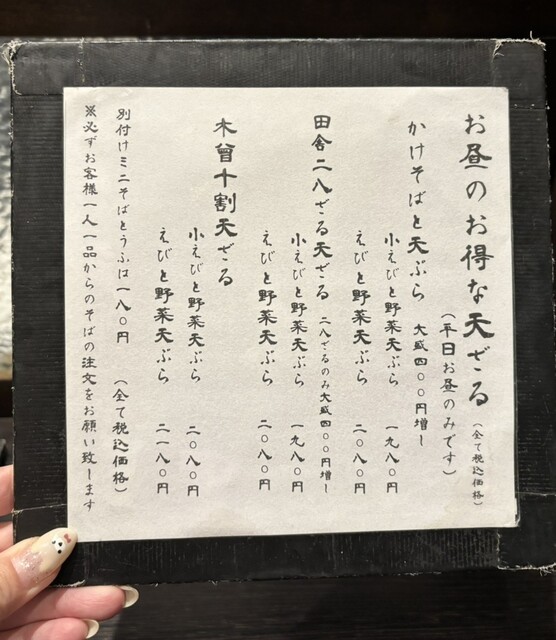 お昼のお得な天ざる (全て税込価格)
(平日お昼のみです)
かけそばと天ぷら 大盛四〇〇円増し
小えびと野菜天ぷら 一九八〇円
えびと野菜天ぷら 二〇八〇円
田舎二八ざる天ざる 二八ざるのみ大盛四〇〇円増し
小えびと野菜天ぷら 一九八〇円
えびと野菜天ぷら 二〇八〇円
木曾十割天ざる
小えびと野菜天ぷら 二〇八〇円
えびと野菜天ぷら 二一八〇円
別付けミニそばとうふは一八〇円 (全て税込価格)
※必ずお客様一人一品からのそばの注文をお願い致します